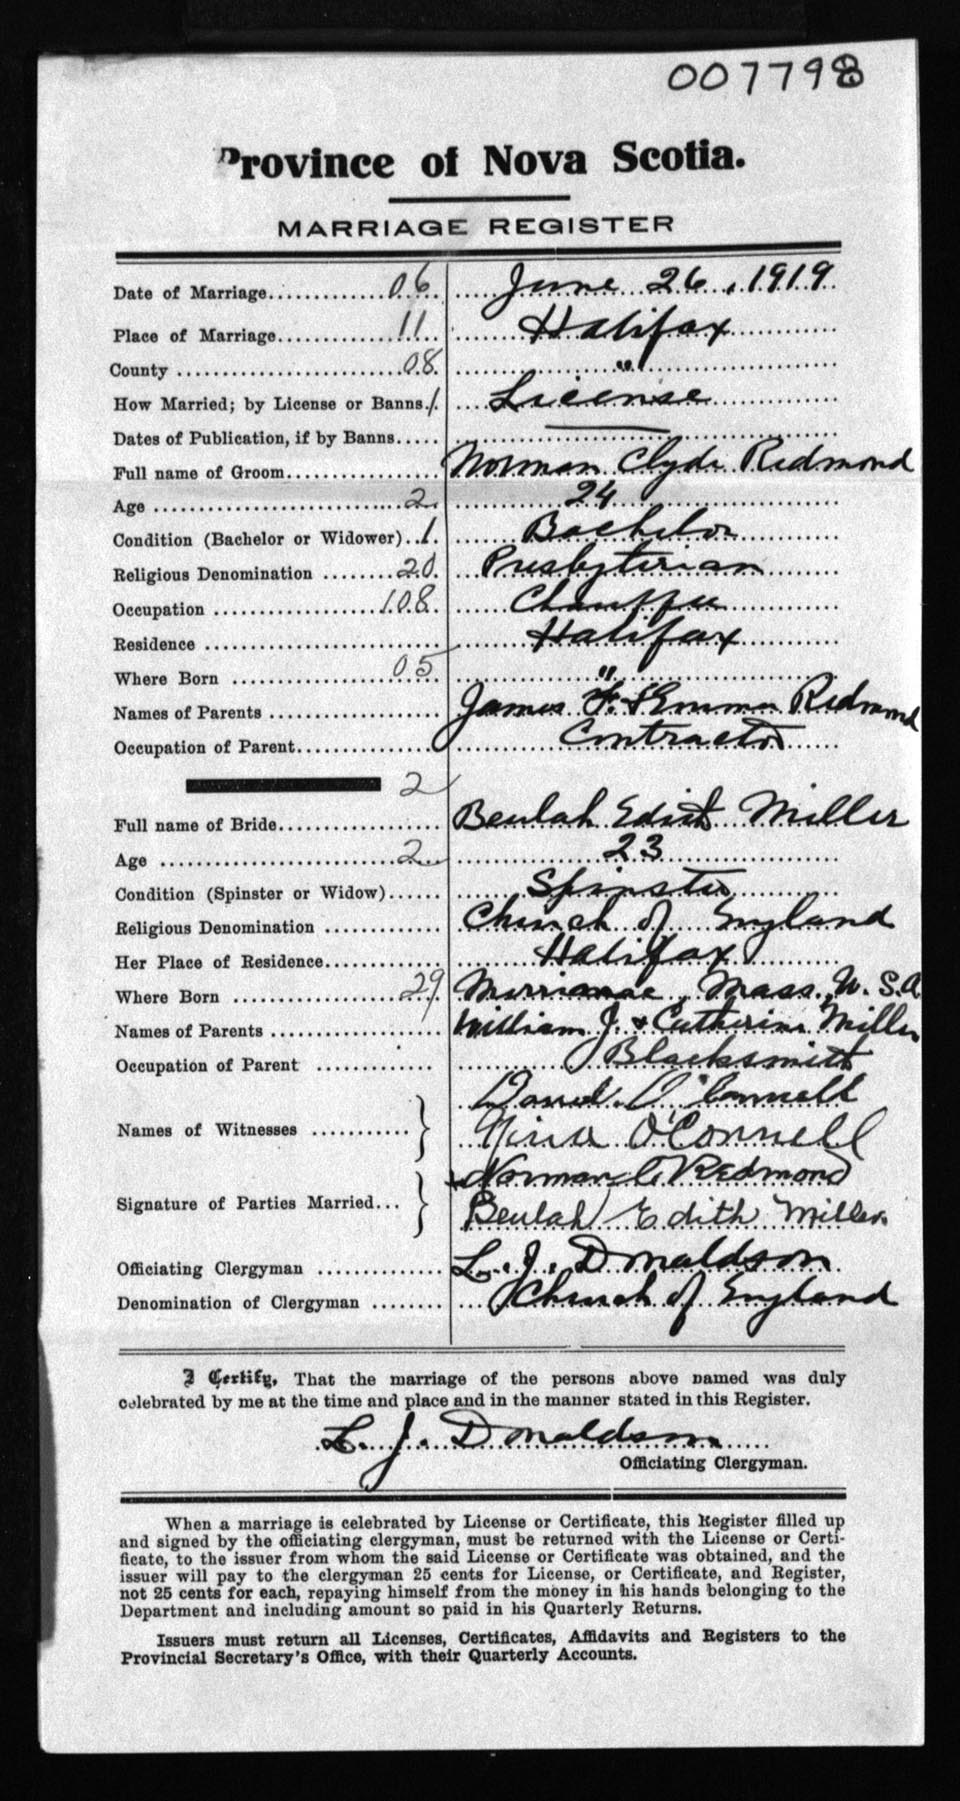 007798
Province of Nova Scotia.
MARRIAGE REGISTER
Date of Marriage 06 June 26, 1919
Place of Marriage 11 Halifax
County 08 "
How Married; by License or Banns 1 License
Dates of Publication, if by Banns —
Full name of Groom Norman Clyde Redmond
Age 2 24
Condition (Bachelor or Widower) 1 Bachelor
Religious Denomination 20 Presbyterian
Occupation 108 Chauffeur
Residence Halifax
Where Born 05 "
Names of Parents James F. & Emma Redmond
Occupation of Parent Contractor
2
Full name of Bride Beulah Edith Miller
Age 2 23
Condition (Spinster or Widow) Spinster
Religious Denomination Church of England
Her Place of Residence Halifax
Where Born 29 Merrimac, Mass, U.S.A
Names of Parents William J. & Catherine Miller
Occupation of Parent Blacksmith
O'Connell
Names of Witnesses O'Connell
Norman C Redmond
Signature of Parties Married Beulah Edith Miller
Officiating Clergyman L. J. Donaldson
Denomination of Clergyman Church of England
I Certify, That the marriage of the persons above named was duly
celebrated by me at the time and place and in the manner stated in this Register.
L. J. Donaldson
Officiating Clergyman.
When a marriage is celebrated by License or Certificate, this Register filled up
and signed by the officiating clergyman, must be returned with the License or Certi-
ficate, to the issuer from whom the said License or Certificate was obtained, and the
issuer will pay to the clergyman 25 cents for License, or Certificate, and Register,
not 25 cents for each, repaying himself from the money in his hands belonging to the
Department and including amount so paid in his Quarterly Returns.
Issuers must return all Licenses, Certificates, Affidavits and Registers to the
Provincial Secretary's Office, with their Quarterly Accounts.